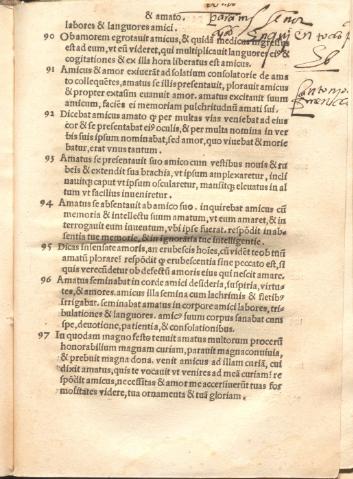 & amato.
labores & languores amici.
90 Ob amorem egrotauit amicus, & quidā medicus ingressus
est ad eum, vt eū videret, qui multiplicauit languores eiꝰ &
cogitationes & ex illa hora liberatus est amicus.
91 Amicus & amor exiuerāt ad solatium consolatorie de ama
to colloquētes, amatus se illis presentauit, plorauit amicus
& propter extasim euanuit amor. amatus excitauit suum
amicum, faciēs ei memoriam pulchritudinū amati sui.
92 Dicebat amicus amato ꝙ per multas vias veniebat ad eius
cor & se presentabat eiꝰ oculis, & per multa nomina in ver
bis suis ipsum nominabat, sed amor, quo viuebat & morie
batur, erat vnus tantum.
93 Amatus se presentauit suo amico cum vestibus nouis & ru
beis & extendit sua brachia, vt ipsum amplexaretur, incli
nauitqꝫ caput vt ipsum oscularetur, mansitqꝫ eleuatus in al
tum vt facilius inueniretur.
94 Amatus se absentauit ab amico suo. inquirebat amicus cū
memoria & intellectu suum amatum, vt eum amaret, & in
terrogauit eum inuentum, vbi ipse fuerat. respōdit in ab-
sentia tue memorie, & in ignorātia tue intelligentie.
95 Dic as insensate amoris, an erubescis hoies, cū vidēt te ob tuū
amatū plorare? respōdit ꝙ erubescentia sine peccato est, si
quis verecūdetur ob defectū amoris eius qui nescit amare.
96 Amatus seminabat in corde amici desideria, suspiria, virtu-
tes, & amores. amicus illa semina cum lachrimis & fletibꝰ
irrigabat. seminabat amatus in corpore amici labores, tri-
bulationes & languores. amicꝰ suum corpus sanabat cum
spe, deuotione, patientia, & consolationibus.
97 In quodam magno festo tenuit amatus multorum procerū
honorabilium magnam curiam, parauit magna conuiuia,
& prebuit magna dona. venit amicus ad illam curiā, cui
dixit amatus, quis te vocauit vt venires ad meā curiam? re
spōdit amicus, necessitas & amor me accersiuerūt tuas for
mositates videre, tua ornamenta & tuā gloriam.